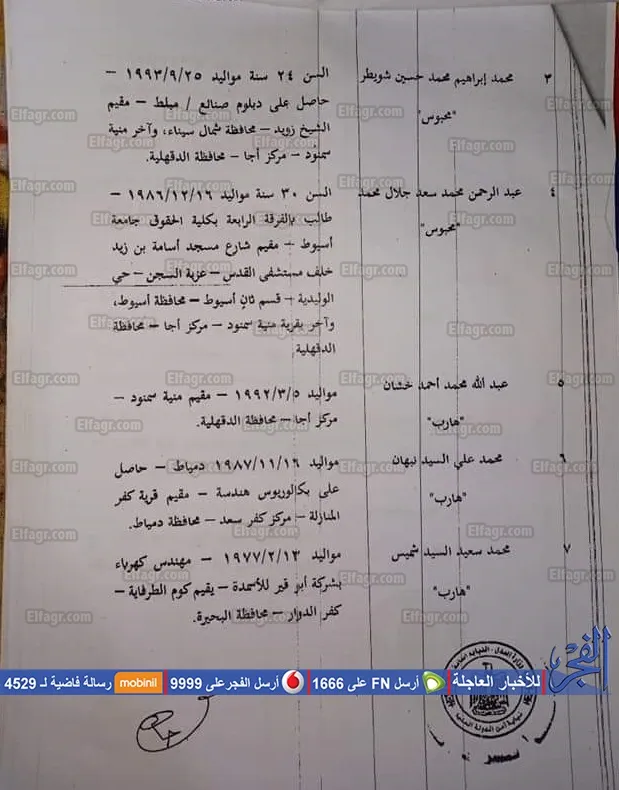 ٣ محمد إبراهيم محمد حسين شويطر
"محبوس"
السن ٢٤ سنة مواليد ١٩٩٣/٩/٢٥ –
حاصل على دبلوم صنائع / مبلط – مقيم
الشيخ زويد – محافظة شمال سيناء، وآخر منية
سمنود – مركز أجا – محافظة الدقهلية.
٤ عبد الرحمن محمد سعد جلال محمد
"محبوس"
السن ٣٠ سنة مواليد ١٩٨٦/١٢/١٦ –
طالب بالفرقة الرابعة بكلية الحقوق جامعة
أسيوط – مقيم شارع مسجد أسامة بن زيد
خلف مستشفى القدس – عزبة السجن – حي
الوليدية – قسم ثان أسيوط – محافظة أسيوط،
وآخر بقرية منية سمنود – مركز أجا – محافظة
الدقهلية
٥ عبد الله محمد أحمد خشان
"هارب"
مواليد ١٩٩٢/٣/٥ – مقيم منية سمنود –
مركز أجا – محافظة الدقهلية.
٦ محمد علي السيد نبهان
"هارب"
مواليد ١٩٨٧/١١/١٦ دمياط – حاصل
على بكالوريوس هندسة – مقيم قرية كفر
المنازلة – مركز كفر سعد – محافظة دمياط.
٧ محمد سعيد السيد شميس
"هارب"
مواليد ١٩٧٧/٢/١٣ – مهندس كهرباء
بشركة أبو قير للأسمدة – يقيم كوم الطرفاية –
كفر الدوار – محافظة البحيرة.
Elfagr.com
الفجر
للأخبار العاجلة أرسل FN على 1666 أرسل الفجر على 9999 mobinil رسالة فاضية لـ 4529